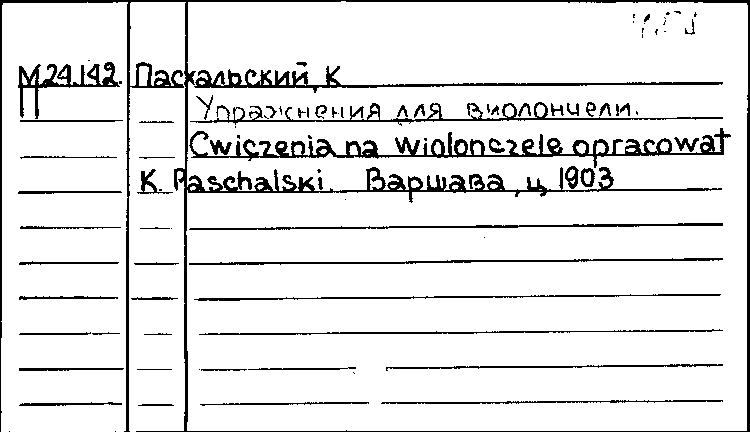 М24.142. Пасхальский, К
П
Упражнения для виолончели.
Cwiczenia na wiolonczele opracował
K. Paschalski. Варшава, ц, 1903